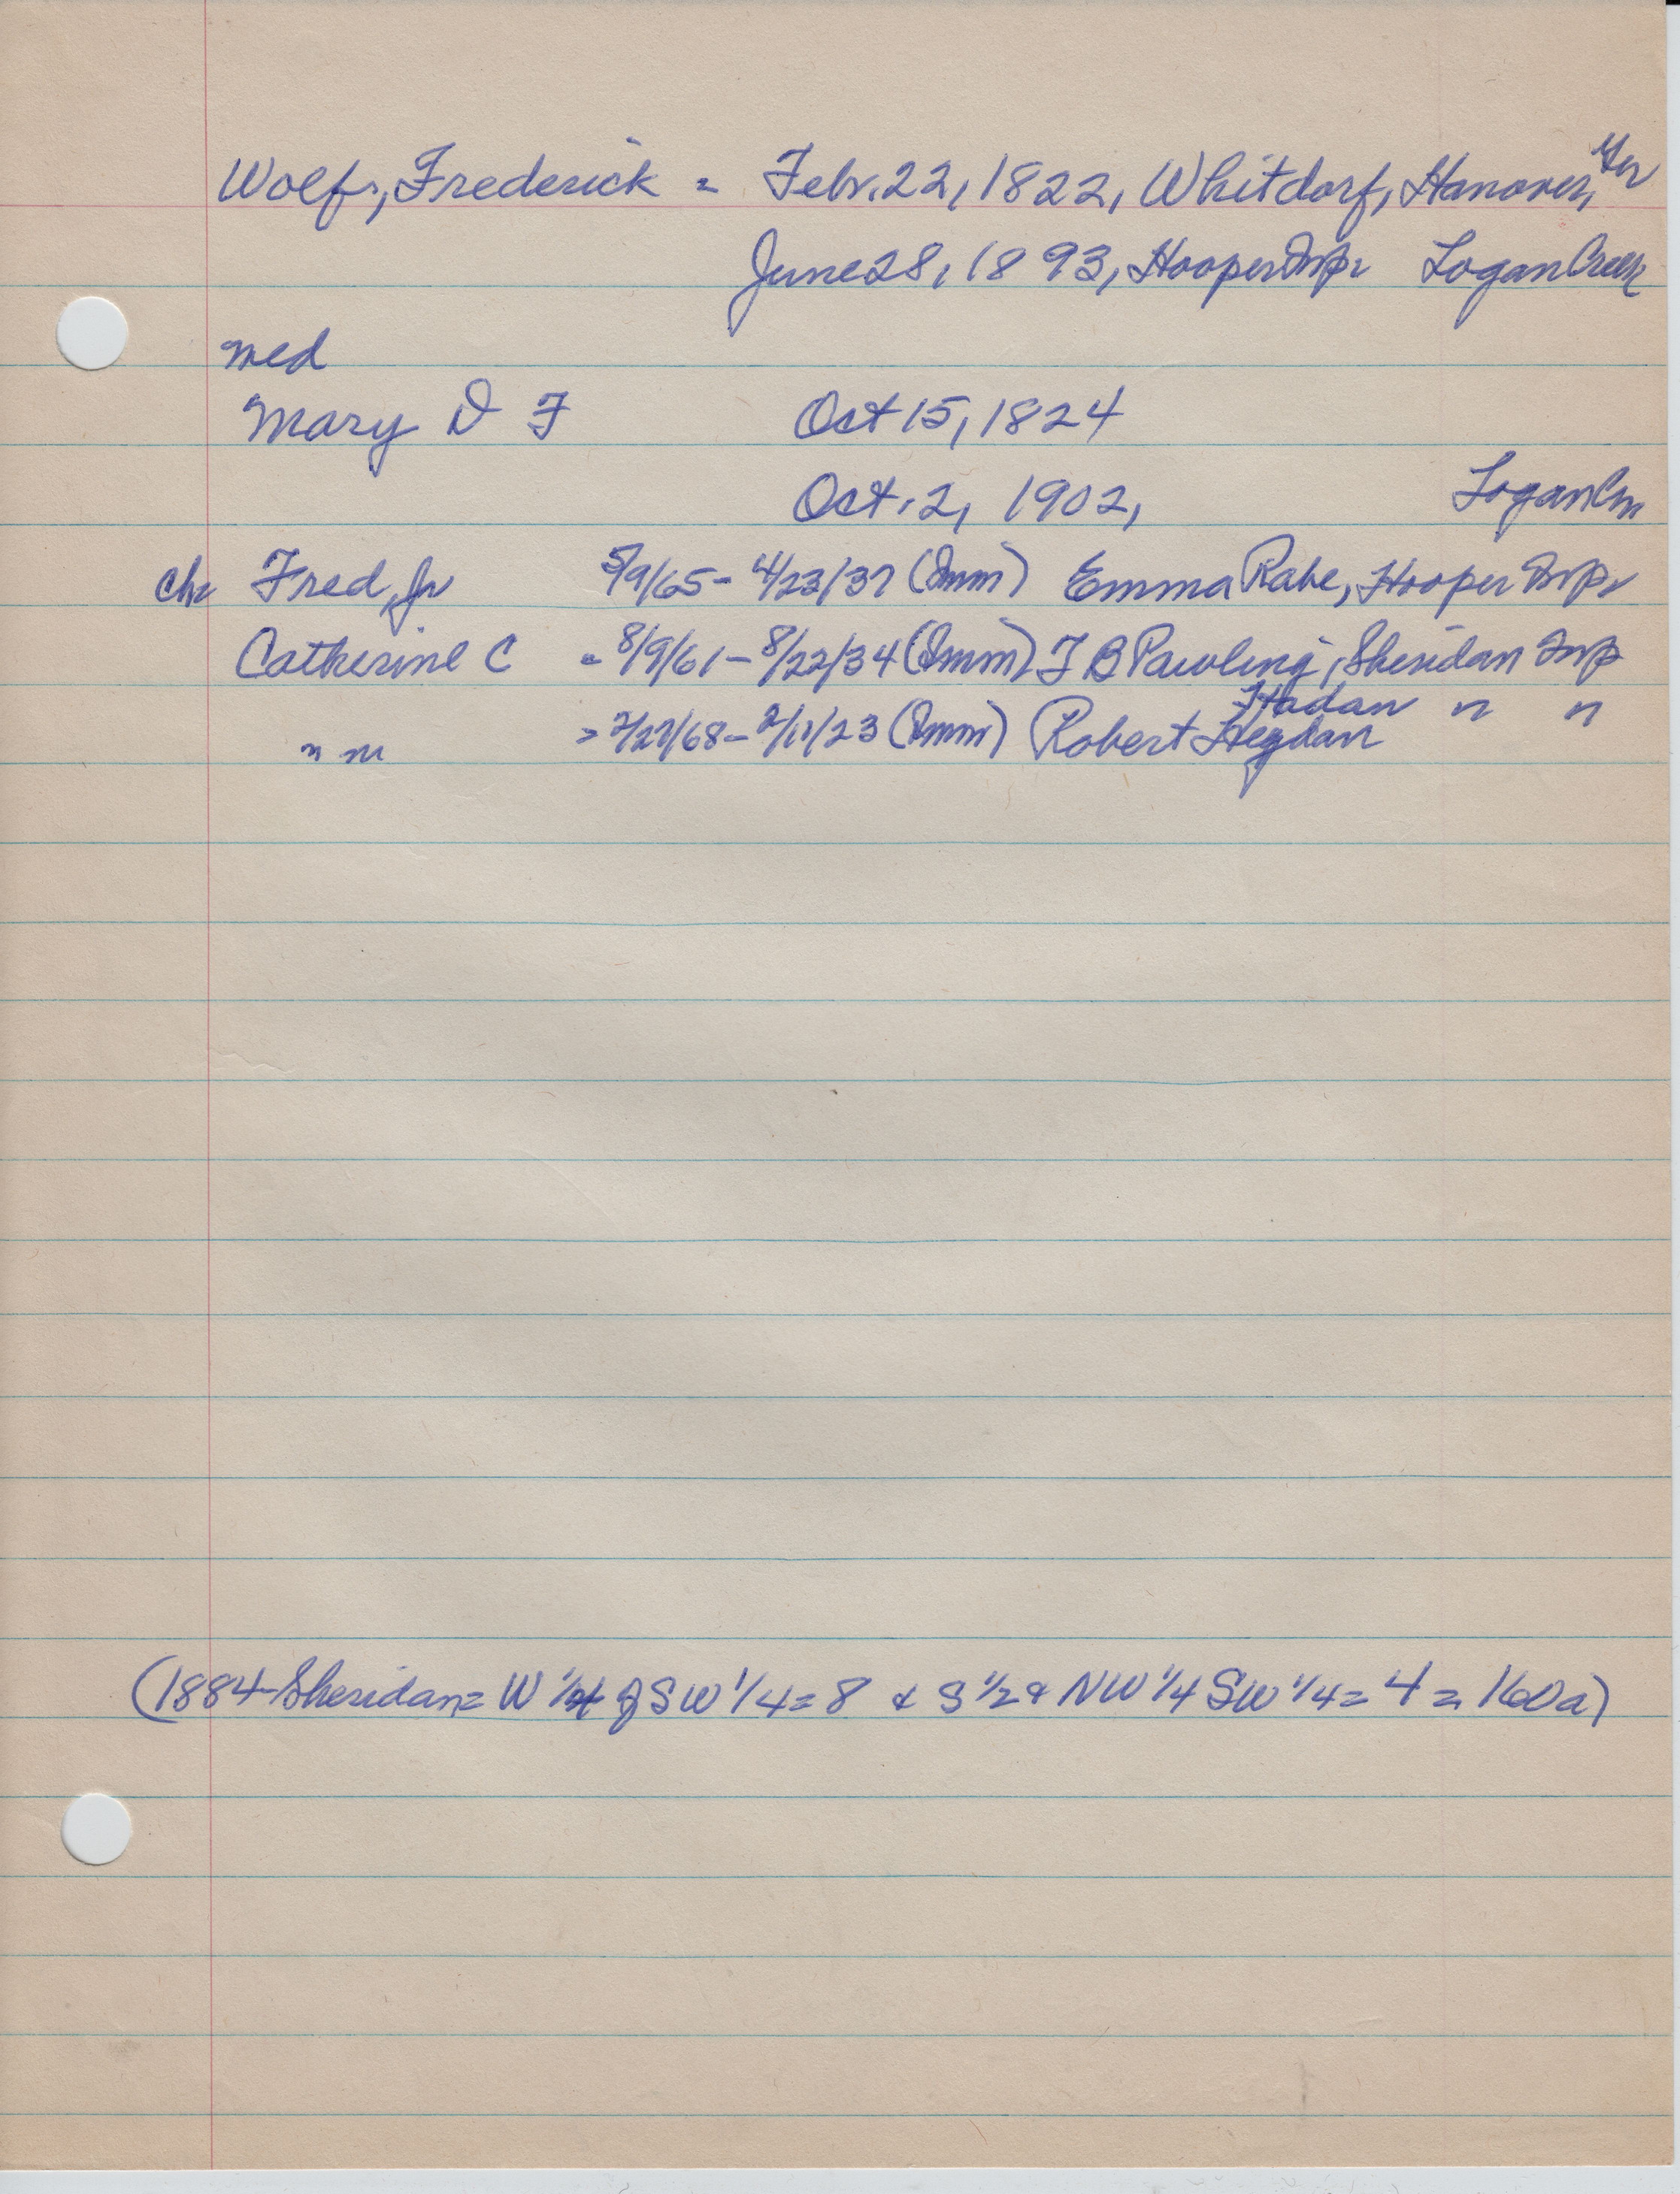 Wolf, Frederick = Febr. 22, 1822, Whitdorf, Hanover, Ger
June 28, 1893, Hooper Twp. Logan Creek
med
Mary D F Oct 15, 1824
Oct. 2, 1902, Logan Cr
chr Fred, Jr 5/9/65 - 4/23/37 (Imm) Emma Rabe, Hooper Twp.
Catherine C = 8/9/61 - 8/22/34 (Imm) F B Pawling, Sheridan Twp
Hadan " "
" m = 2/27/68 - 2/11/23 (Imm) Robert
(1884 Sheridan = W 1/2 of SW 1/4 = 8 & S 1/2 & NW 1/4 SW 1/4 = 4 = 160 a)